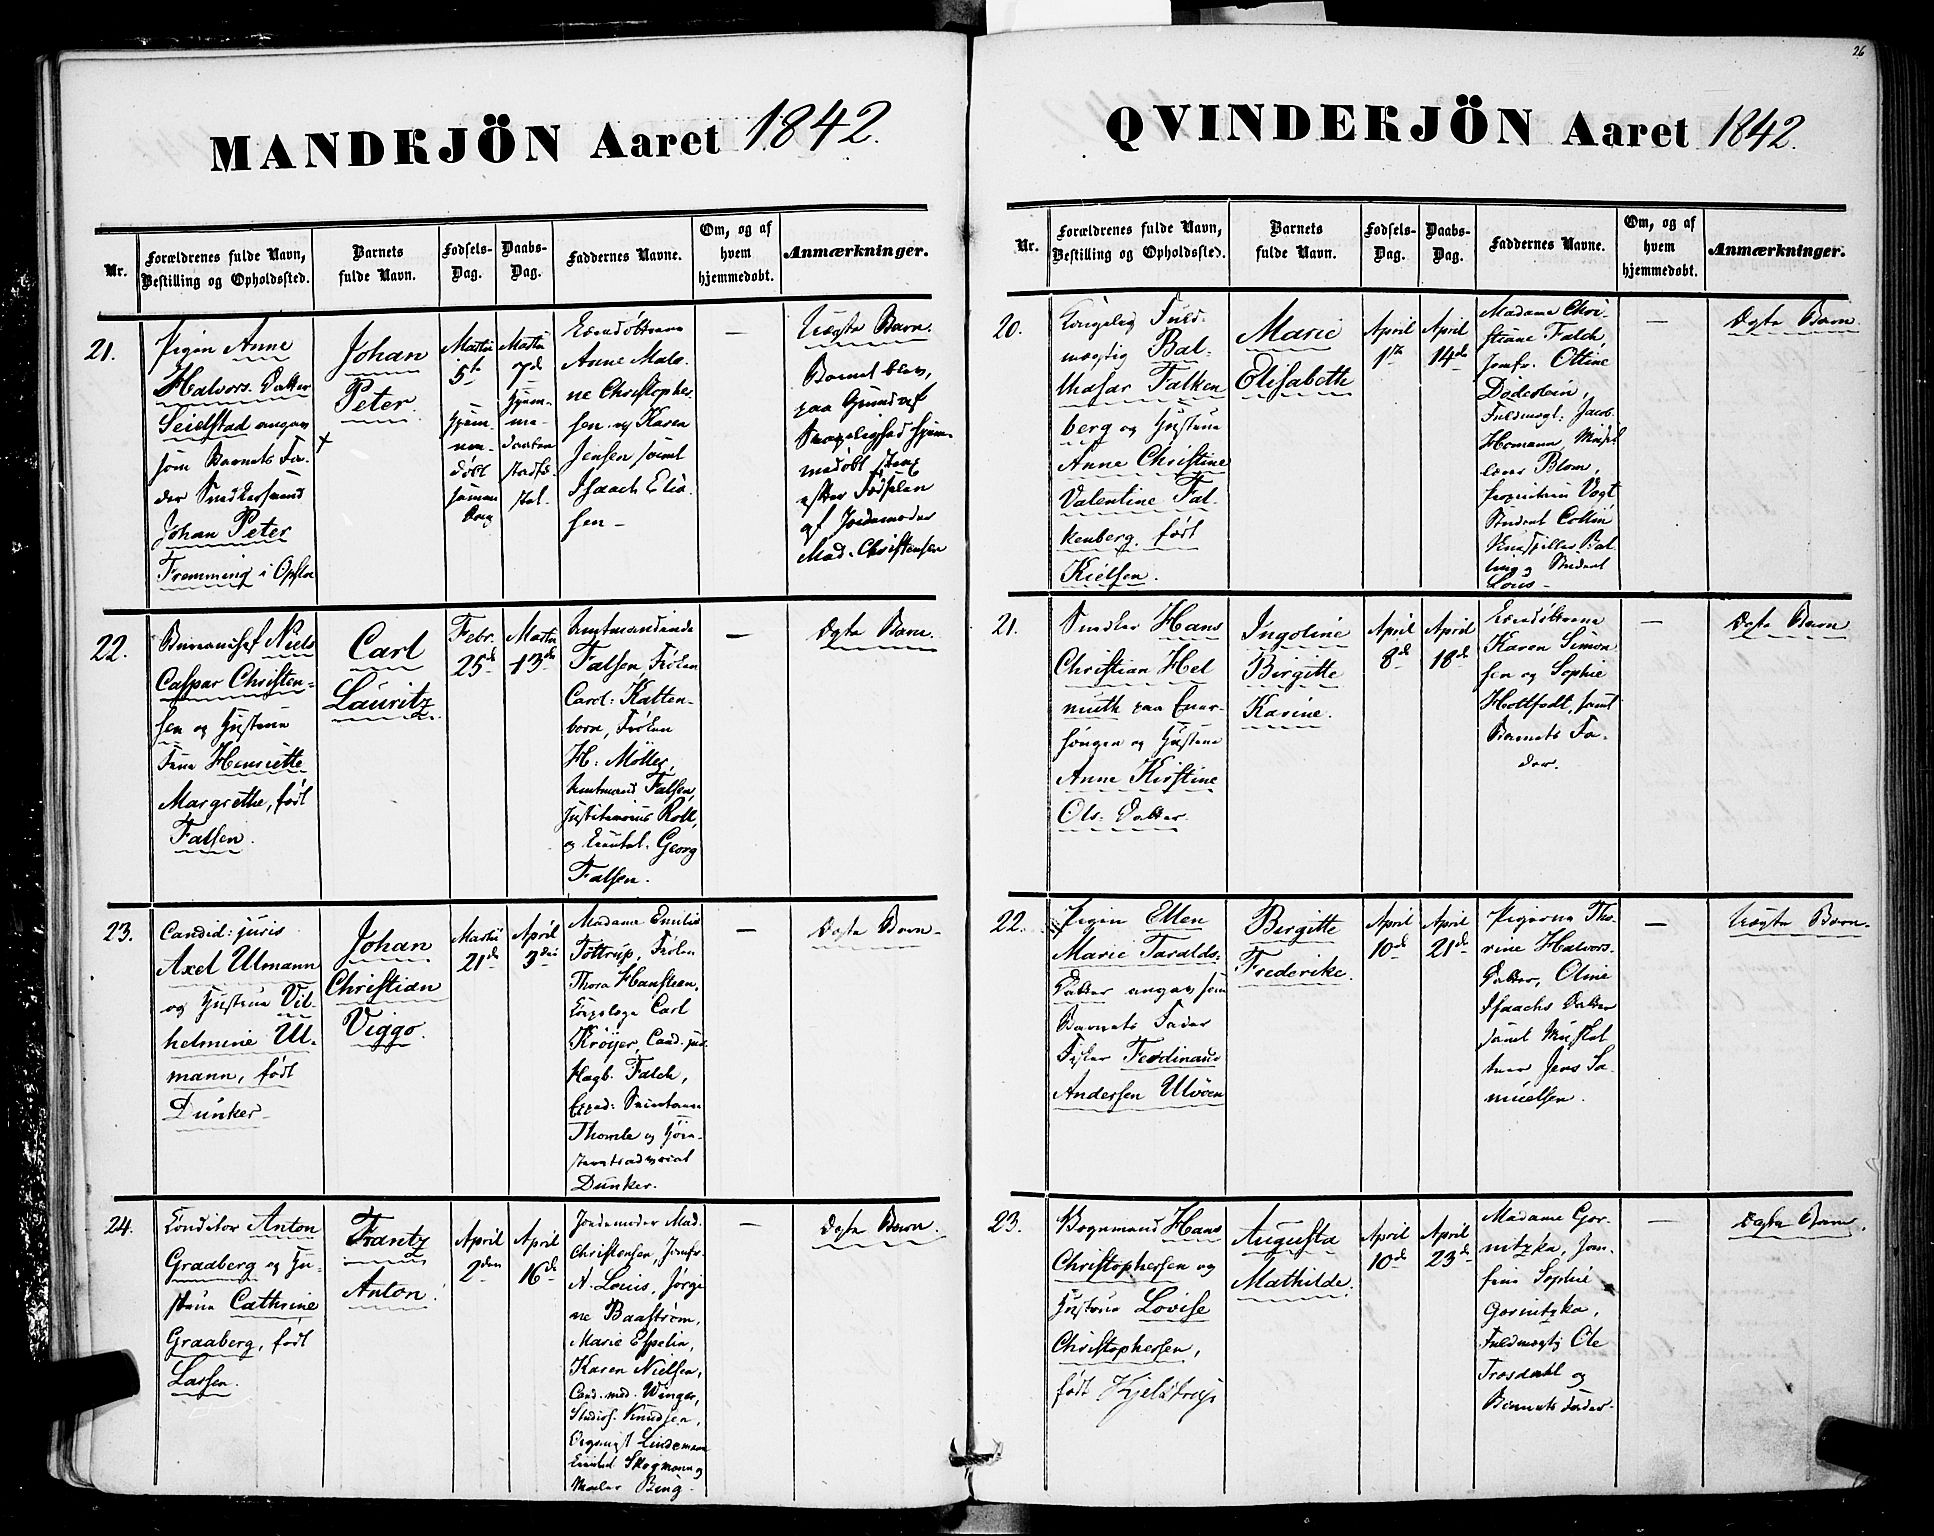 26
MANDKJÖN Aaret 1842.
Nr.
Forældrenes fulde Navn,
Bestilling og Opholdssted.
Barnets
fulde Navn.
Fødsels-
Dag.
Daabs-
Dag.
Faddernes Navne.
Om, og af
hvem
hjemmedøbt.
Anmærkninger.
21.
Pigen Anne
Halvors Datter
Seielstad angav
som Barnets Fa-
der Snedkersvend
Johan Peter
Fremming i Opslo
Johan
Peter.
Martii
5te
hjem-
me-
døbt
samme
Dag
Martii
7de
hjem-
me-
daaben
stadfæ-
stet.
Anne Male-
ne Christopher-
sen og Karen
Jensen samt
Isaach Elia-
sen
—
Uægte Barn.
Barnet blev,
paa Grund af
Svagelighed hjem-
medøbt strax
efter Fødselen
af Jordemoder
Mad. Christensen
22.
Niels
Caspar Christen-
sen og Hustrue
Frue Henriette
Margrethe, født
Falsen.
Carl
Lauritz.
Febr.
25de
Martii
13de
Amtmandinde
Falsen, Frøken
Carol: Katten-
born, Frøken
H: Möller,
Amtmand Falsen,
Justitiarius Roll,
og Georg
Falsen.
—
Ægte Barn.
23.
Candid: juris
Axel Ulmann
og Hustrue Vil-
helmine Ul-
mann, født
Dunker
Johan
Christian
Viggo.
Martii
21de
April
3die
Madame Emilie
Tottrup, Frøken
Thora Hansteen,
Carl
Krøyer, Cand. jur.
Hagb. Falch,
Thomle og
Dunker.
—
Ægte Barn
24.
Conditor Anton
Graaberg og Hu-
strue Cathrine
Graaberg, født
Lassen.
Frantz
Anton.
April
2den
April
16de
Jordemoder Mad.
Christensen, Jomfr.
A. Louis, Jørgi-
ne Baastrøm,
Marie Espelin,
Karen Nielsen,
Cand. med. Winger,
Studios. Knudsen,
Organist Lindeman
Skogmann og
Maler Bing.
—
Ægte Barn.
QVINDEKJÖN Aaret 1842.
Nr.
Forældrenes fulde Navn,
Bestilling og Opholdssted.
Barnets
fulde Navn.
Fødsels-
Dag.
Daabs-
Dag.
Faddernes Navne.
Om, og af
hvem
hjemmedøbt.
Anmærkninger.
20.
Kongelig Fuld-
mægtig Bal-
thasar Falken
berg og Hustrue
Anne Christine
Valentine Fal-
kenberg, født
Kielsen.
Marie
Elisabethe
April
1ste
April
14de
Madame Chri-
stiane Falch,
Jomfr. Ottine
Døderlein,
Fuldmægt: Jacob
Homann,
Blom,
Vogt
Student Collin
og Student
Louis
—
Ægte Barn
21.
Snedker Hans
Christian Hel
muth paa Ener-
hougen og Hustrue
Anne Kirstine
Ols: Datter.
Ingoline
Birgitte
Karine.
April
8de
April
18de
Karen Simon
sen og Sophie
Holtfodt, samt
Barnets Fa-
der.
—
Ægte Barn
22.
Pigen Ellen
Marie Taralds-
Datter angav som
Barnets Fader
Fisker Ferdinand
Andersen Ulvøen
Birgitte
Frederike.
April
10de
April
21de
Pigerne Tho-
rine Halvors-
Datter, Oline
Isaachs Datter
samt Musket
teer Jens Sa-
muelsen.
—
Uægte Barn.
23.
Bogmand Hans
Christophersen og
Hustrue Lovise
Christophersen,
født Kjelstrup
Augusta
Mathilde.
April
10de
April
23de
Madame Gor-
nitzka, Jom-
fru Sophie
Gornitzka,
Fuldmægtig Ole
Trosdahl og
Barnets Fader.
—
Ægte Barn.